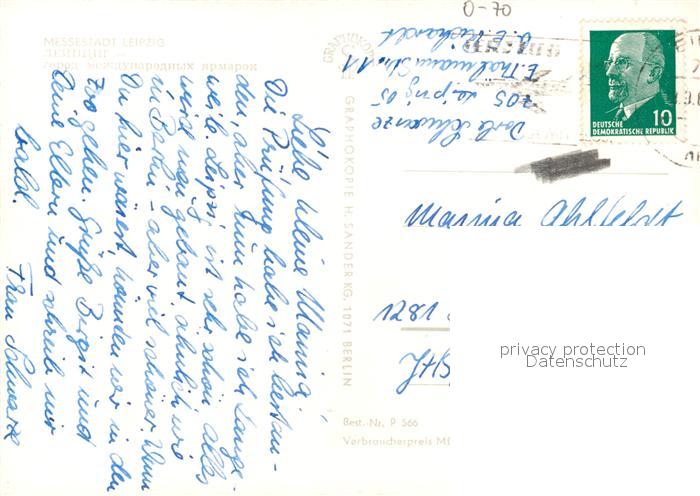 MESSESTADT LEIPZIG
ЛЕЙПЦИГ —
город международных ярмарок
Liebe kleine Marina!
Die Prüfung habe ich bestan-
den, aber nun habe ich Lange-
weile. Leipzig ist sehr schön, alles
wird neu gebaut ähnlich wie
in Berlin – aber viel schöner. Wenn
Du hier wärest, könnten wir in den
Zoo gehen. Grüße Birgit und
Deine Eltern und schreib mir
bald.
Frau Schwarze
GRAPHOKOPIE H. SANDER KG, 1071 BERLIN
Dora Schwarze
705 Leipzig 05
E. Thälmannstr. 11
b. E. Richardt
0-70
DEUTSCHE
DEMOKRATISCHE REPUBLIK
10
Marina Ahlfeldt
1281
privacy protection
Datenschutz
Best.-Nr. P 566
Verbraucherpreis M